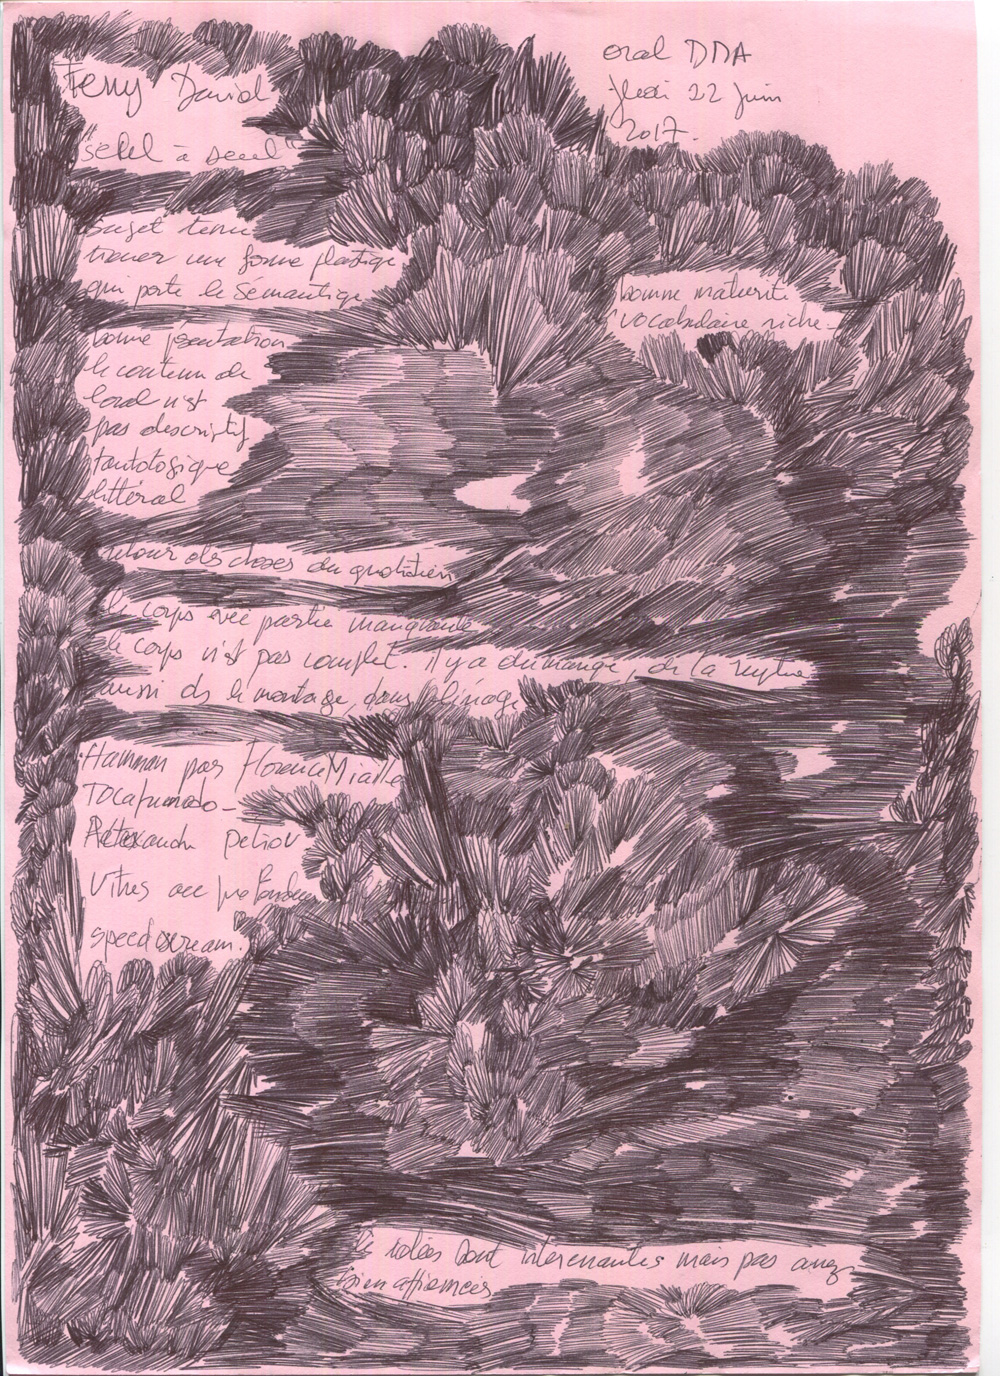 Ferry David
oral DMA
jeudi 22 juin
2017.
"seul à seul"
sujet tenu
trouver une forme plastique
qui porte le sémantique
bonne maturité
vocabulaire riche -
bonne
le contenu de
l'oral n'est
pas descriptif
tautologique
littéral
retour ds choses du quotidien
le corps avec partie manquante
le corps n'est pas complet. il y a du manque, de la
aussi ds le montage, dans l'image
Hamman par Florence Mialle
Alexandre petrov
Vitres avec profondeur
speed
idées sont interenantes mais pas assez
bien affirmées